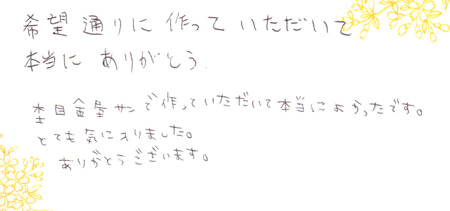 希望通りに作っていただいて
本当にありがとう.
杢目金屋サンで作っていただいて本当によかったです。
とても気に入りました。
ありがとうございます。